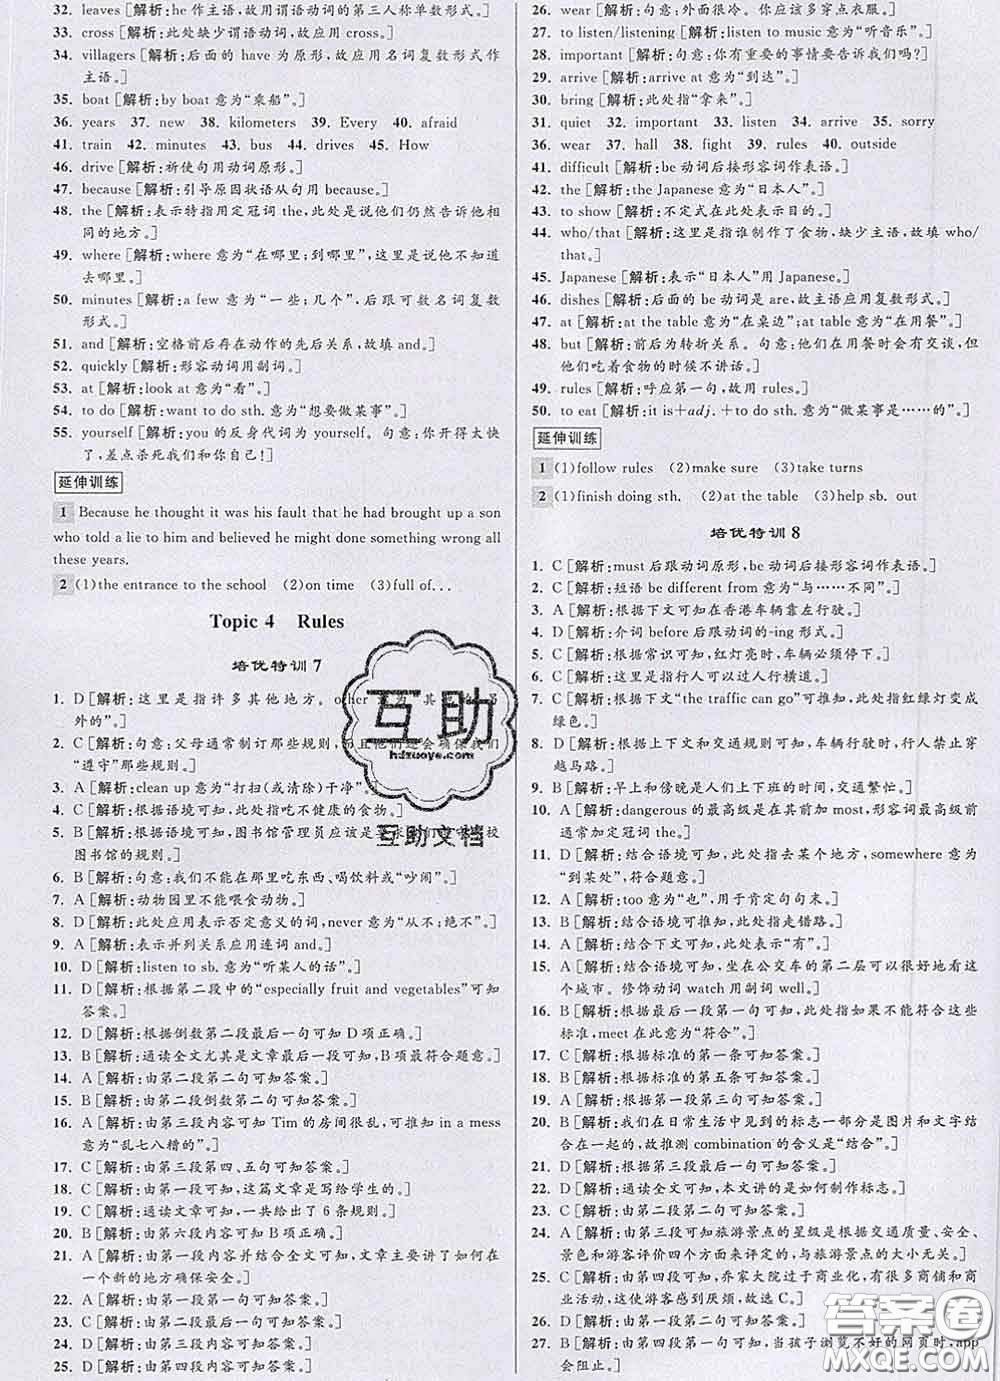 32. leaves [解析:he 作主语,故用谓语动词的第三人称单数形式。]
33. cross [解析:此处缺少谓语动词,故应用 cross。]
34. villagers [解析:后面的 have 为原形,故应用名词复数形式作
主语。]
35. boat [解析:by boat 意为“乘船”。]
36. years 37. new 38. kilometers 39. Every 40. afraid
41. train 42. minutes 43. bus 44. drives 45. How
46. drive [解析:祈使句用动词原形。]
47. because [解析:引导原因状语从句用 because。]
48. the [解析:表示特指用定冠词 the,此处是说他们仍然告诉他相
同的地方。]
49. where [解析:where 意为“在哪里;到哪里”,这里是说他不知道
去哪里。]
50. minutes [解析:a few 意为“一些;几个”,后跟可数名词复数
形式。]
51. and [解析:空格前后存在动作的先后关系,故填 and。]
52. quickly [解析:形容动词用副词。]
53. at [解析:look at 意为“看”。]
54. to do [解析:want to do sth. 意为“想要做某事”。]
55. yourself [解析:you 的反身代词为 yourself。句意:你开得太快
了,差点杀死我们和你自己!]
延伸训练
1 Because he thought it was his fault that he had brought up a son
who told a lie to him and believed he might done something wrong all
these years.
2 (1)the entrance to the school (2)on time (3)full of...
Topic 4 Rules
培优特训 7
1. D [解析:这里是指许多其他地方。other 意为“其他的,另
外的”。]
2. C [解析:句意:父母通常制订那些规则,而且他们还会确保我们
“遵守”那些规则。]
3. A [解析:clean up 意为“打扫(或清除)干净”。]
4. C [解析:根据语境可知,此处指吃不健康的食物。]
5. B [解析:根据语境可知,图书馆管理员应该是要求我们遵守学校
图书馆的规则。]
6. B [解析:句意:我们不能在那里吃东西、喝饮料或“吵闹”。]
7. A [解析:动物园里不能喂食动物。]
8. D [解析:此处应用表示否定意义的词,never 意为“从不;绝不”。]
9. A [解析:表示并列关系应用连词 and。]
10. D [解析:listen to sb. 意为“听某人的话”。]
11. D [解析:根据第二段中的“especially fruit and vegetables”可知
答案。]
12. D [解析:根据倒数第二段最后一句可知 D 项正确。]
13. B [解析:通读全文尤其是文章最后一段可知,B 项最符合题意。]
14. A [解析:由第二段第二句可知答案。]
15. B [解析:由第二段倒数第二句可知答案。]
16. A [解析:由第三段内容可知 Tim 的房间很乱,可推知 in a mess
意为“乱七八糟的”。]
17. C [解析:由第三段第四、五句可知答案。]
18. C [解析:由第一段可知,这篇文章是写给学生的。]
19. C [解析:通读文章可知,一共给出了 6 条规则。]
20. B [解析:由第六段内容可知 B 项正确。]
21. A [解析:由第一段内容并结合全文可知,文章主要讲了如何在
一个新的地方确保安全。]
22. A [解析:由第一段第一句可知答案。]
23. B [解析:由第二段最后一句可知答案。]
24. D [解析:由第三段内容可知答案。]
25. D [解析:由第四段内容可知答案。]
26. wear [解析:句意:外面很冷。你应该多穿点衣服。]
27. to listen/listening [解析:listen to music 意为“听音乐”。]
28. important [解析:句意:你有重要的事情要告诉我们吗?]
29. arrive [解析:arrive at 意为“到达”。]
30. bring [解析:此处指“拿来”。]
31. quiet 32. important 33. listen 34. arrive 35. sorry
36. wear 37. hall 38. fight 39. rules 40. outside
41. difficult [解析:be 动词后接形容词作表语。]
42. the [解析:the Japanese 意为“日本人”。]
43. to show [解析:不定式在此处表示目的。]
44. who/that [解析:这里是指谁制作了食物,缺少主语,故填 who/
that。]
45. Japanese [解析:表示“日本人”用 Japanese。]
46. dishes [解析:后面的 be 动词是 are,故主语应用复数形式。]
47. at [解析:at the table 意为“在桌边”;at table 意为“在用餐”。]
48. but [解析:前后为转折关系。句意:他们在用餐时会有交谈,但
他们吃着食物的时候不讲话。]
49. rules [解析:呼应第一句,故用 rules。]
50. to eat [解析:it is+adj. +to do sth. 意为“做某事是……的”。]
延伸训练
1 (1)follow rules (2)make sure (3)take turns
2 (1)finish doing sth. (2)at the table (3)help sb. out
培优特训 8
1. C [解析:must 后跟动词原形,be 动词后接形容词作表语。]
2. C [解析:短语 be different from 意为“与……不同”。]
3. A [解析:根据下文可知在香港车辆靠左行驶。]
4. D [解析:介词 before 后跟动词的-ing 形式。]
5. B [解析:根据常识可知,红灯亮时,车辆必须停下。]
6. C [解析:这里指行人可以过人行横道。]
7. C [解析:根据下文“the traffic can go”可推知,此处指红绿灯变成
绿色。]
8. D [解析:根据上下文和交通规则可知,车辆行驶时,行人禁止穿
越马路。]
9. B [解析:早上和傍晚是人们上下班的时间,交通繁忙。]
10. A [解析:dangerous 的最高级是在其前加 most,形容词最高级前
通常加定冠词 the。]
11. D [解析:结合语境可知,此处指去某个地方,somewhere 意为
“到某处”,符合题意。]
12. A [解析:too 意为“也”,用于肯定句句末。]
13. B [解析:结合语境可推知,此处指走错路。]
14. A [解析:结合下文可知,此处表示“有”。]
15. A [解析:结合语境可知,坐在公交车的第二层可以很好地看这
个城市。修饰动词 watch 用副词 well。]
16. B [解析:由最后一段第一句可知,此处指如果不能符合这些
标准,meet 在此意为“符合”。]
17. C [解析:根据标准的第一条可知答案。]
18. B [解析:根据标准的第五条可知答案。]
19. A [解析:根据第一段第三句可知答案。]
20. B [解析:我们在日常生活中见到的标志一部分是图片和文字结
合在一起的,故推测 combination 的含义是“结合”。]
21. D [解析:根据第三段可知答案。]
22. D [解析:通读全文可知,本文讲的是如何制作标志。]
23. D [解析:由第二段第二句可知答案。]
24. A [解析:由第三段可知旅游景点的星级是根据交通质量、安全、
景色和游客评价四个方面来评定的,与旅游景点的大小无关。]
25. C [解析:由第四段可知,乔家大院过于商业化,有很多商铺和商
业活动,这使游客感到厌烦,故选 C。]
26. B [解析:由第二段最后一句可知答案。]
27. B [解析:由第四段第一句可知,当孩子浏览不好的网页时,app
会阻止。]
互助
hdzuoye.com
互助文档
答案圈
MXQE.COM